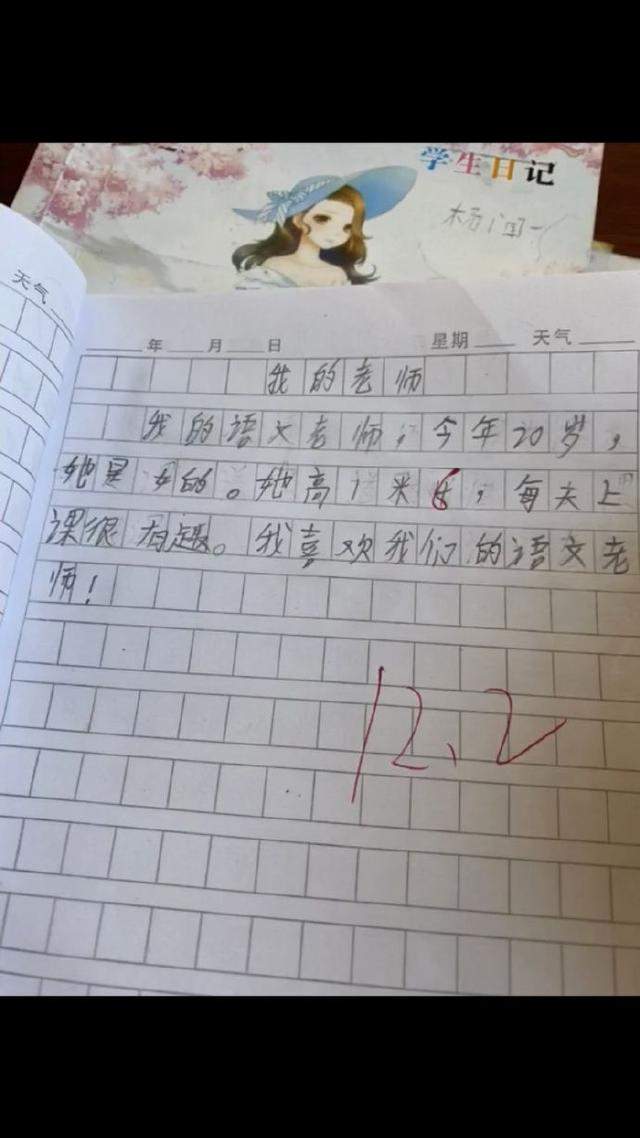 学生日记
天气
年 月 日 星期 天气
我的老师
我的语文老师，今年20岁，
她是女的。她高1米6，每天上
课很有趣。我喜欢我们的语文老
师！
12.2